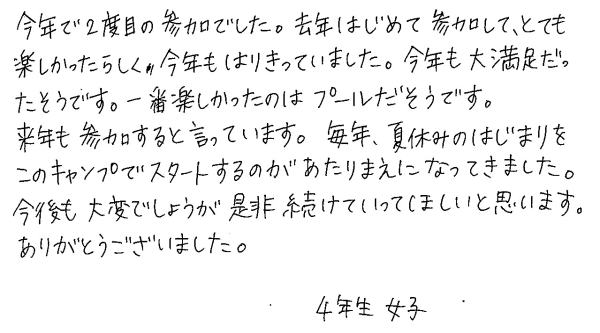 今年で2度目の参加でした。去年はじめて参加して、とても
楽しかったらしく、今年もはりきっていました。今年も大満足だっ
たそうです。一番楽しかったのはプールだそうです。
来年も参加すると言っています。毎年、夏休みのはじまりを
このキャンプでスタートするのがあたりまえになってきました。
今後も大変でしょうが是非続けていってほしいと思います。
ありがとうございました。
4年生 女子